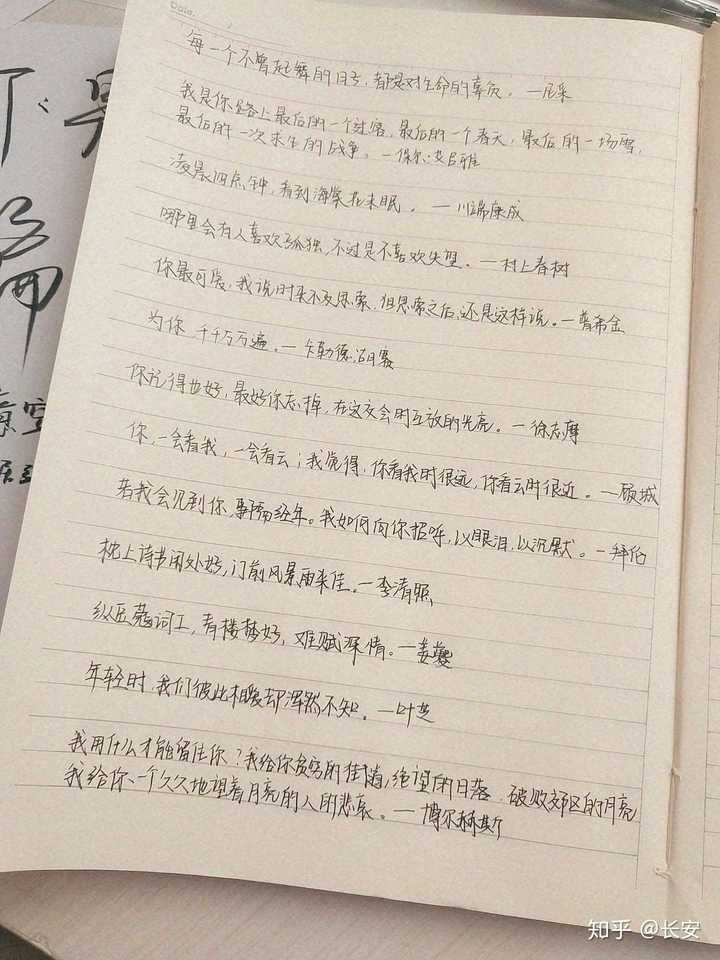 Date.
每一个不曾起舞的日子,都是对生命的辜负。—尼采
我是你路上最后的一个过客,最后的一个春天,最后的一场雪,
最后的一次求生的战争。—保尔·艾吕雅
凌晨四点钟,看到海棠花未眠。—川端康成
哪里会有人喜欢孤独,不过是不喜欢失望。—村上春树
你最可爱,我说时来不及思索,但思索之后,还是这样说。—普希金
为你,千千万万遍。—卡勒德·胡赛
你记得也好,最好你忘掉,在这交会时互放的光亮。—徐志摩
你,一会看我,一会看云;我觉得,你看我时很远,你看云时很近。—顾城
若我会见到你,事隔经年。我如何向你招呼,以眼泪,以沉默。—拜伦
枕上诗书闲处好,门前风景雨来佳。—李清照
纵豆蔻词工,青楼梦好,难赋深情。—姜夔
年轻时,我们彼此相爱却浑然不知。—叶芝
我用什么才能留住你?我给你贫穷的街道,绝望的日落,破败郊区的月亮
我给你一个久久地望着月亮的人的悲哀。—博尔赫斯
知乎 @长安